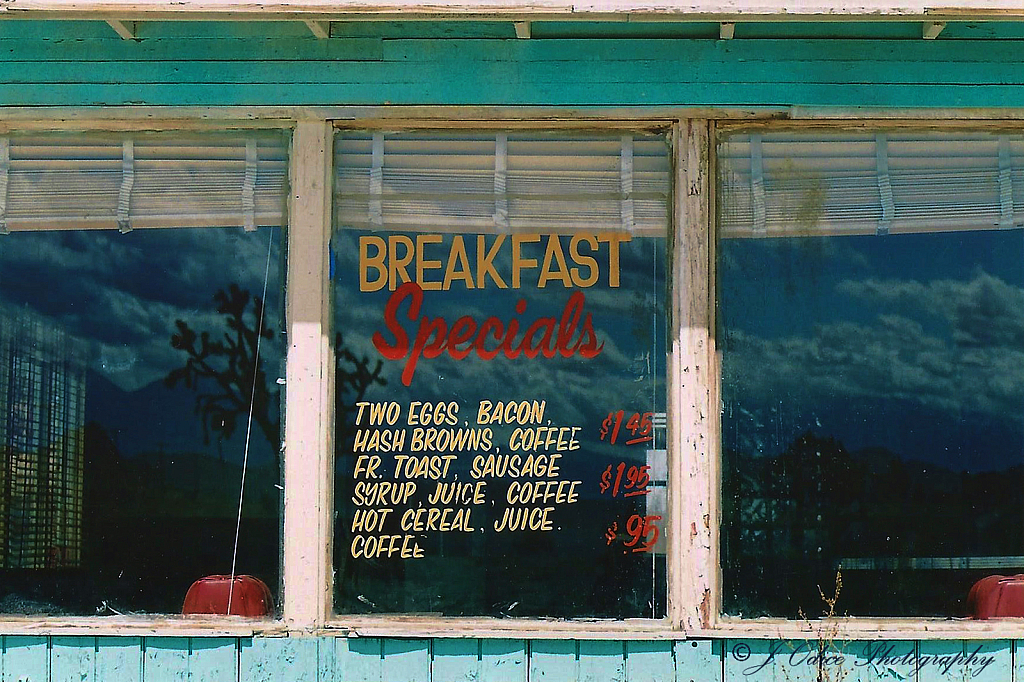 BREAKFAST
Specials
TWO EGGS, BACON,
HASH BROWNS, COFFEE $1.45
FR. TOAST, SAUSAGE
SYRUP, JUICE, COFFEE $1.95
HOT CEREAL, JUICE.
COFFEE $.95
© J. Photography